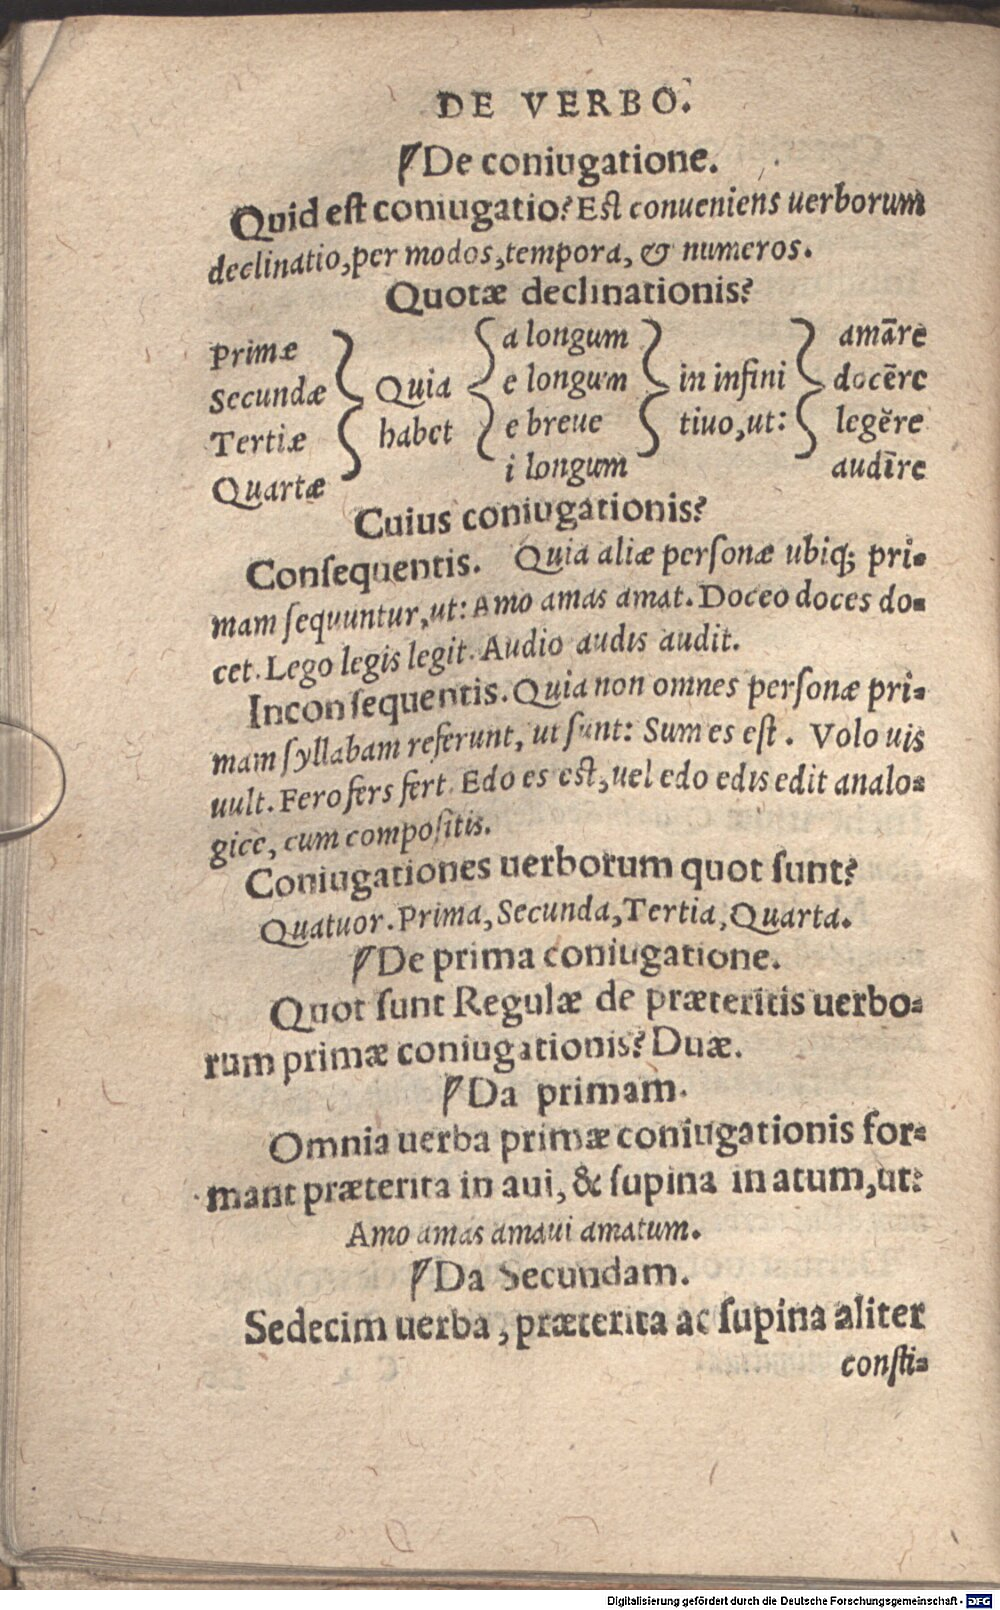 DE VERBO.
De coniugatione.
Quid est coniugatio? Est conueniens uerborum
declinatio, per modos, tempora, & numeros.
Quotæ declinationis?
Primæ a longum amāre
Secundæ Quia e longum in infini docēre
Tertiæ habet e breue tiuo, ut: legĕre
Quartæ i longum audīre
Cuius coniugationis?
Consequentis. Quia aliæ personæ ubiq; pri-
mam sequuntur, ut: Amo amas amat. Doceo doces do-
cet. Lego legis legit. Audio audis audit.
Inconsequentis. Quia non omnes personæ pri-
mam syllabam referunt, ut sunt: Sum es est. Volo uis
uult. Fero fers fert. Edo es est, uel edo edis edit analo-
gice, cum compositis.
Coniugationes uerborum quot sunt?
Quatuor. Prima, Secunda, Tertia, Quarta.
De prima coniugatione.
Quot sunt Regulæ de præteritis uerbo-
rum primæ coniugationis? Duæ.
Da primam.
Omnia uerba primæ coniugationis for-
mant præterita in aui, & supina in atum, ut:
Amo amas amaui amatum.
Da Secundam.
Sedecim uerba, præterita ac supina aliter
consti-
Digitalisierung gefördert durch die Deutsche Forschungsgemeinschaft - DFG